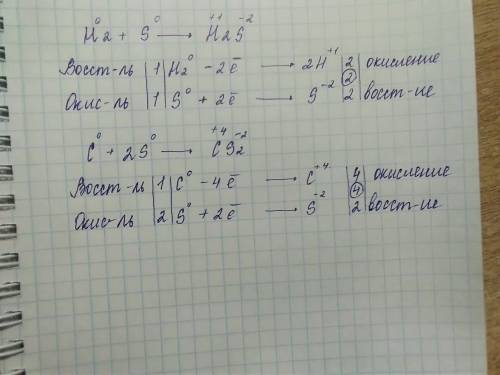 H₂⁰ + S⁰ ⟶ H₂⁺¹S⁻²
Восст-ль |1| H₂⁰ - 2ē ⟶ 2H⁺¹ |2| окисление
②
Окис-ль |1| S⁰ + 2ē ⟶ S⁻² |2| восст-ие
C⁰ + 2S⁰ ⟶ C⁺⁴S₂⁻²
Восст-ль |1| C⁰ - 4ē ⟶ C⁺⁴ |4| окисление
④
Окис-ль |2| S⁰ + 2ē ⟶ S⁻² |2| восст-ие